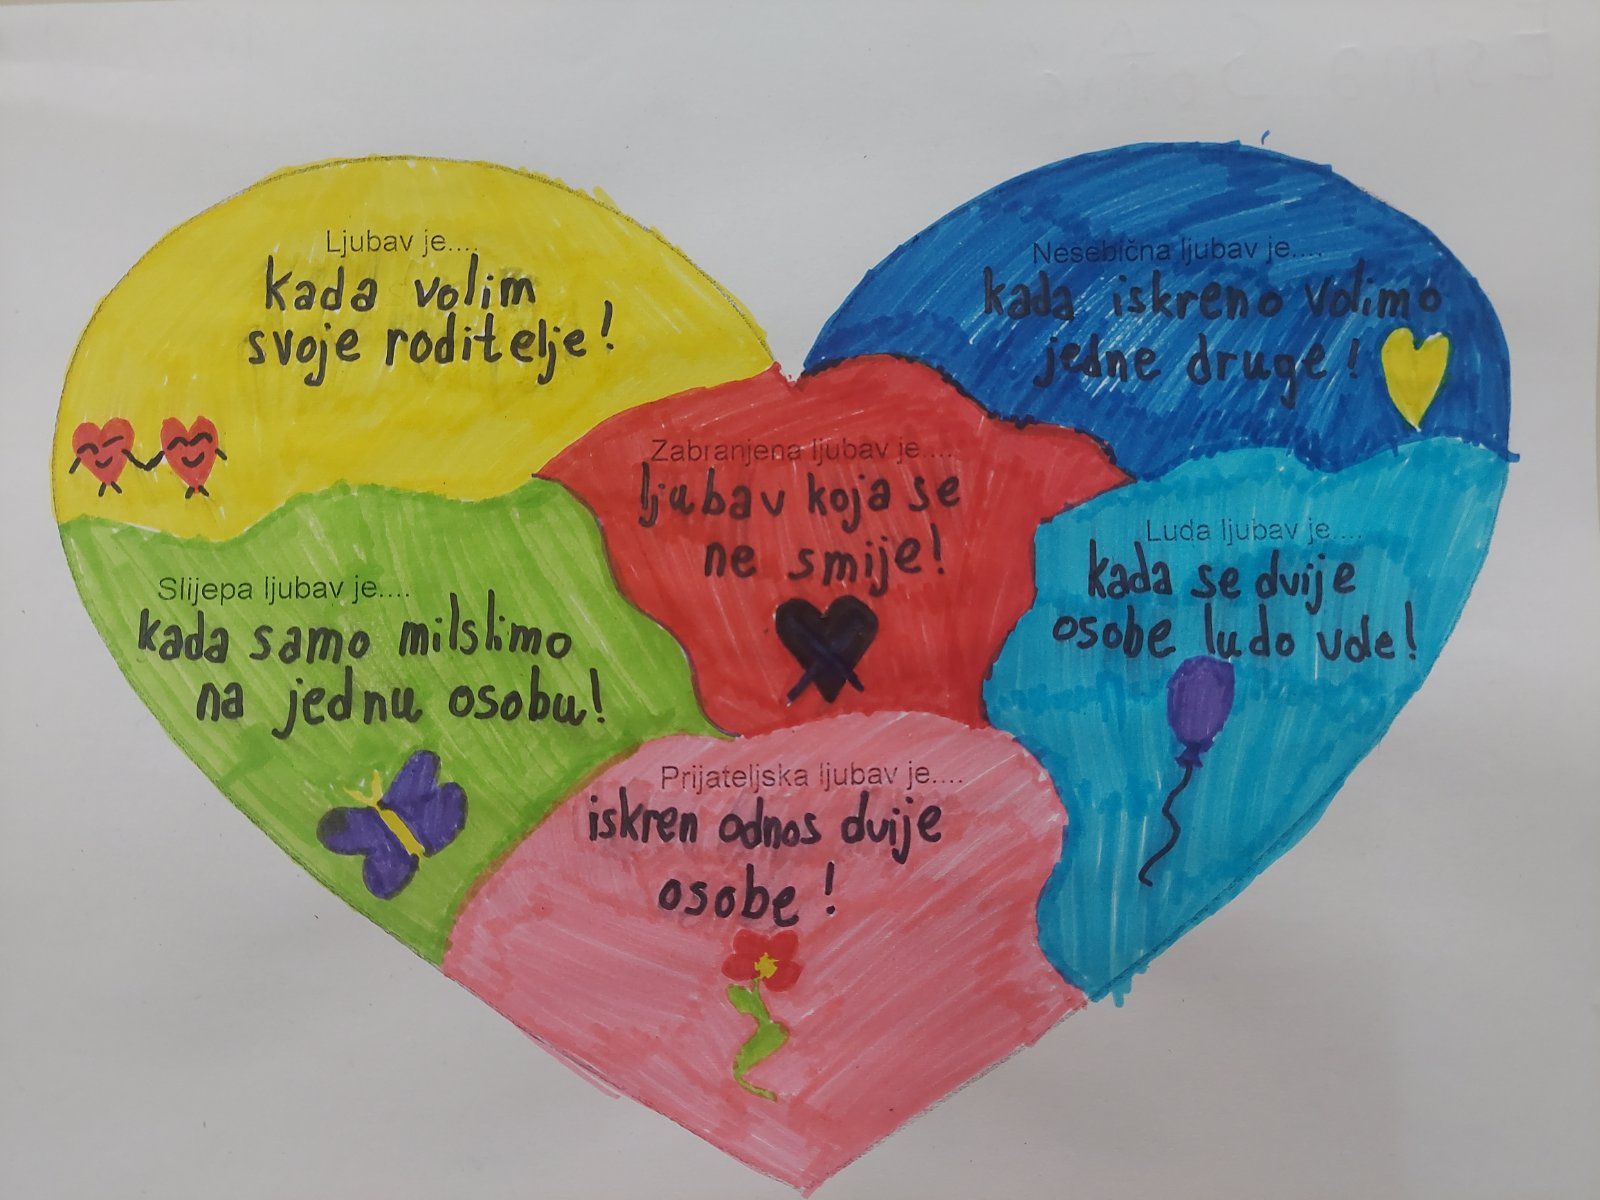 Ljubav je....
kada volim
svoje roditelje!
Nesebična ljubav je....
kada iskreno volimo
jedne druge!
Zabranjena ljubav je....
ljubav koja se
ne smije!
Luda ljubav je....
kada se dvije
osobe ludo vole!
Slijepa ljubav je....
kada samo milslimo
na jednu osobu!
Prijateljska ljubav je....
iskren odnos dvije
osobe!